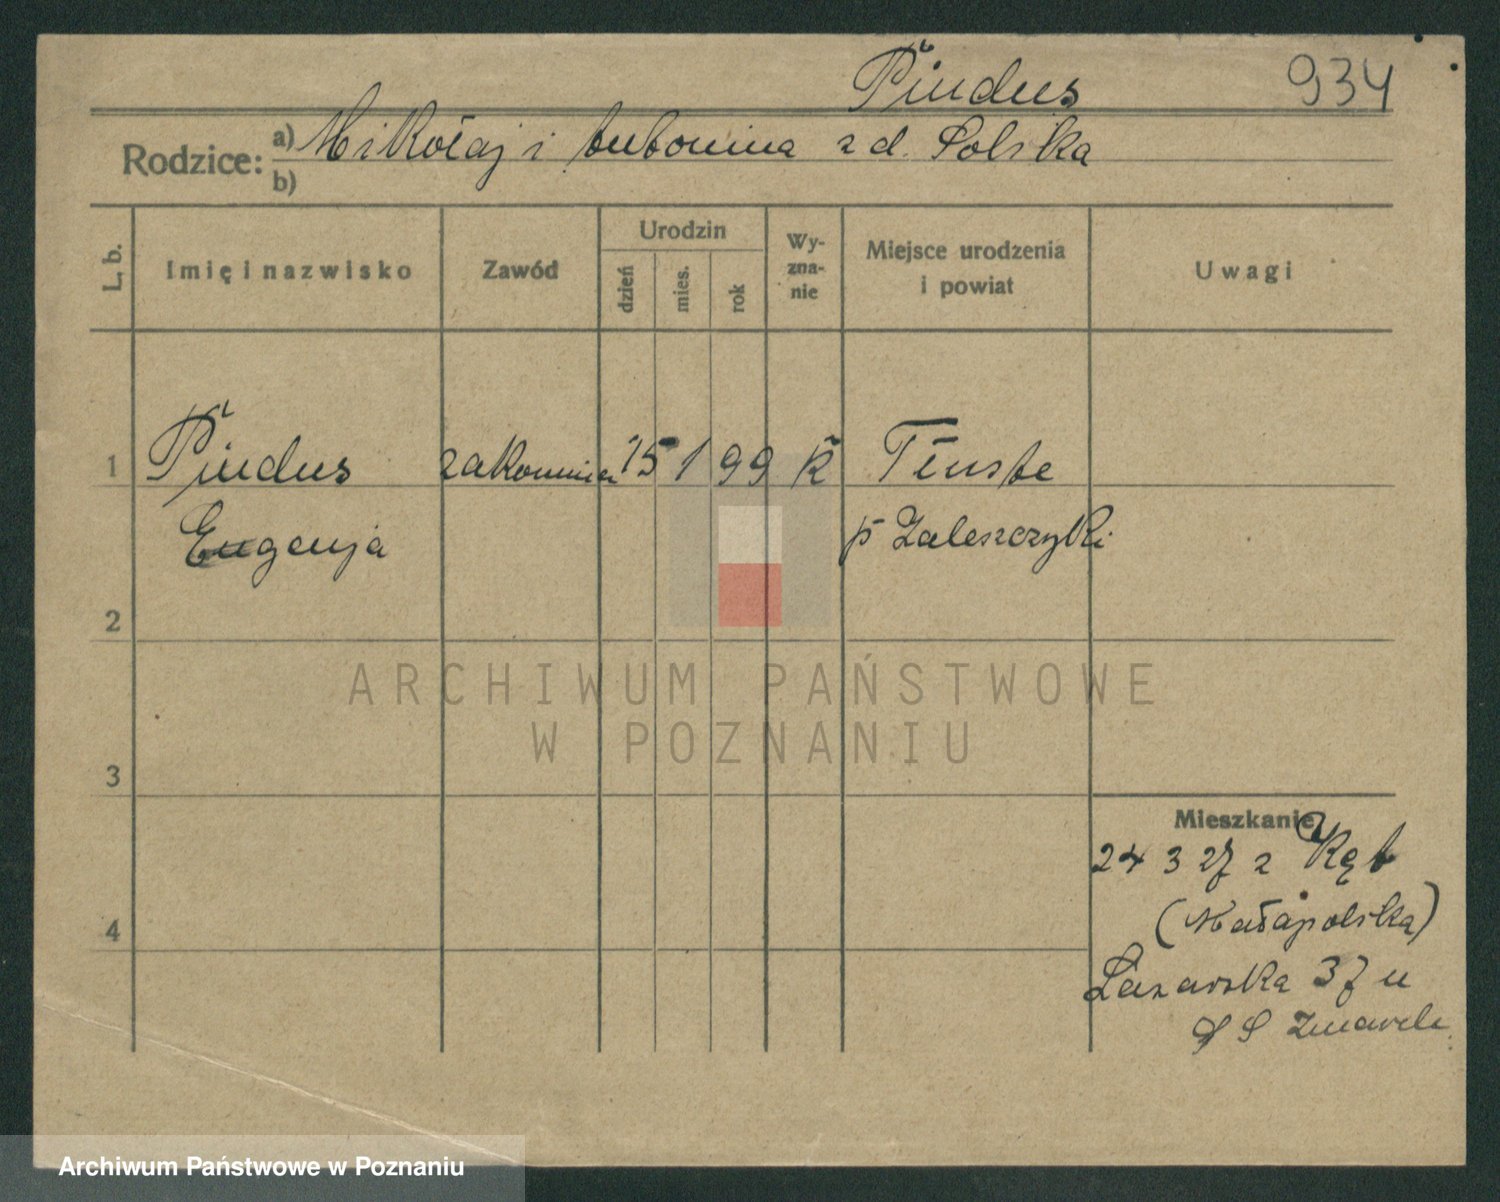 Pindus 934
Rodzice: a) Mikołaj i zd. Polska
b)
L. b. Imię i nazwisko Zawód Urodzin dzień mies. rok Wyzna-nie Miejsce urodzenia i powiat Uwagi
1 Pindus zakonnica 15 1 99 k Tłuste
Eugenja p Zaleszczyki
2
ARCHIWUM PAŃSTWOWE
W POZNANIU
3
Mieszkanie
24 3 27 z
4 (Małapolska)
37 u
Archiwum Państwowe w Poznaniu